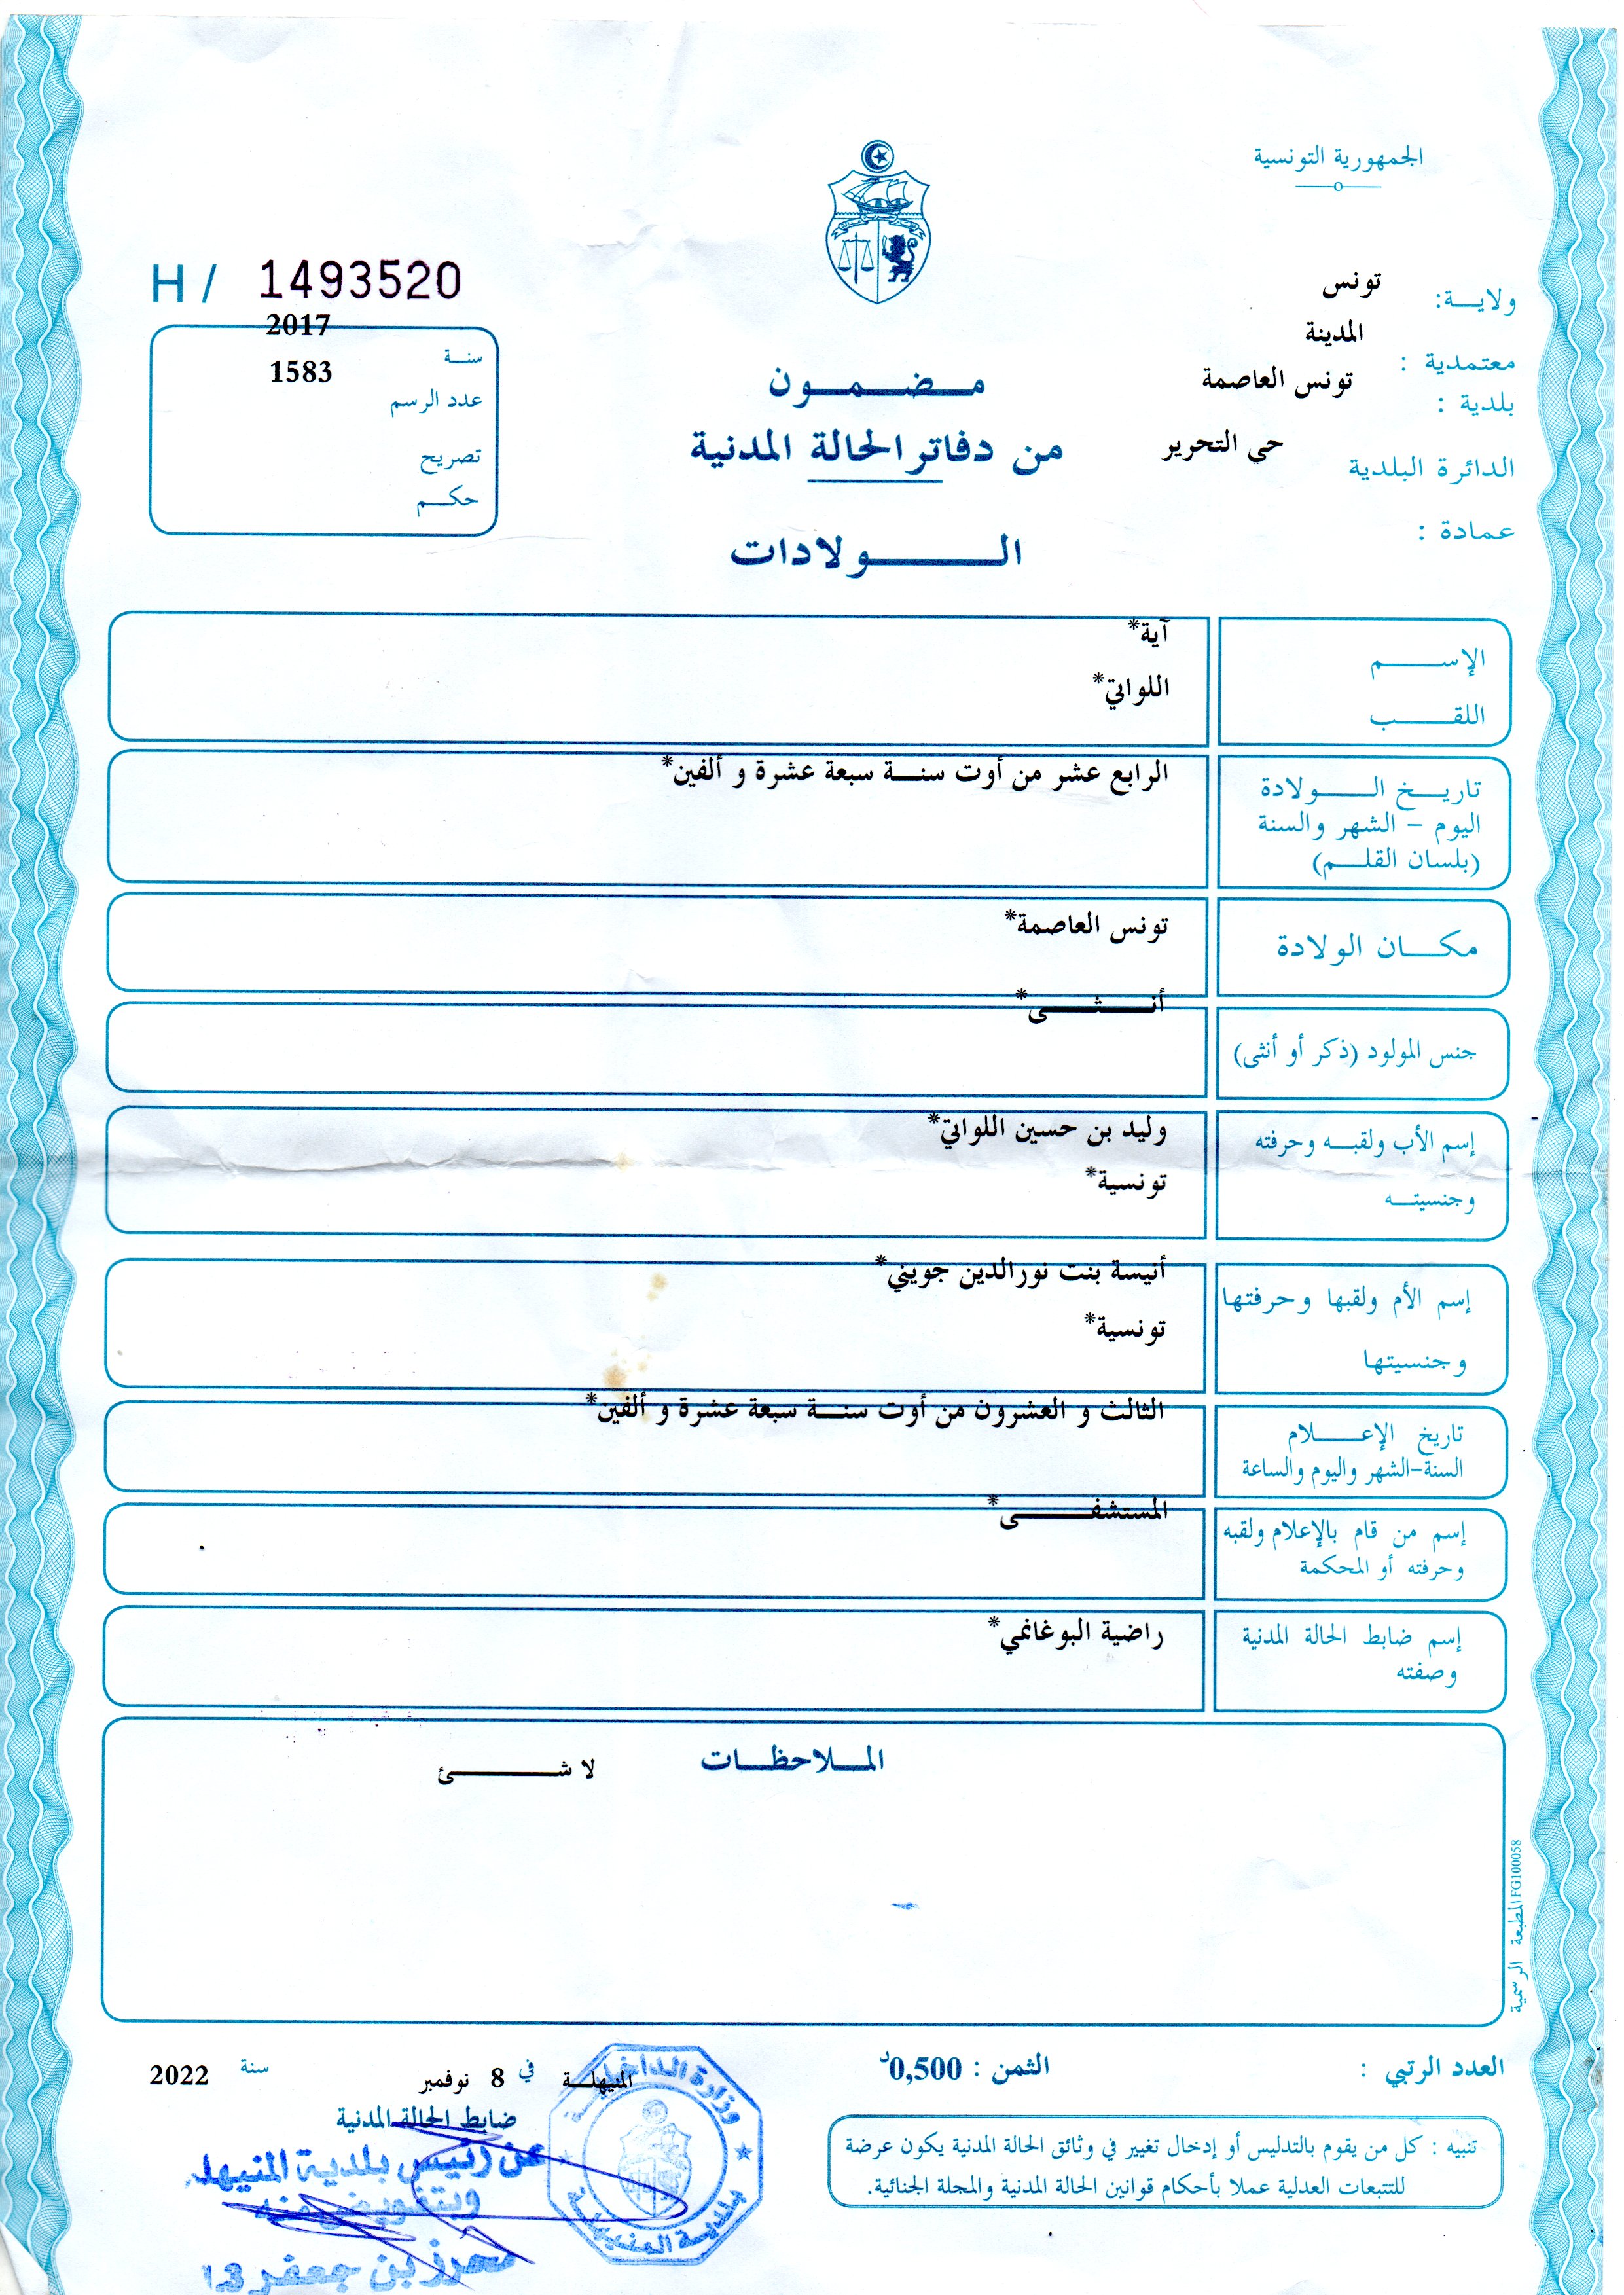 الجمهورية التونسية
ولايـــة: تونس
معتمدية : المدينة
بلدية : تونس العاصمة
الدائرة البلدية حى التحرير
عمادة :
H / 1493520
سنـــة 2017
عدد الرسم 1583
تصريح
حكـــم
مـــضـــمـــون
من دفاتر الحالة المدنية
الـــــــولادات
الإســـــــم آية*
اللقـــــــب اللواتي*
تاريـــخ الـــــولادة
اليوم – الشهر والسنة
(بلسان القلـــم)
الرابع عشر من أوت سنـــة سبعة عشرة و ألفين*
مكـــان الولادة تونس العاصمة*
جنس المولود (ذكر أو أنثى) أنـــثـــى*
إسم الأب ولقبـــه وحرفته وليد بن حسين اللواتي*
وجنسيتـــه تونسية*
إسم الأم ولقبها وحرفتها أنيسة بنت نورالدين جويني*
وجنسيتها تونسية*
تاريخ الإعـــــلام
السنة-الشهر واليوم والساعة
الثالث و العشرون من أوت سنـــة سبعة عشرة و ألفين*
إسم من قام بالإعلام ولقبه
وحرفته أو المحكمة
المستشفـــــى*
إسم ضابط الحالة المدنية
وصفته
راضية البوغانمي*
المـــلاحظـــات
لا شـــــــئ
المطبعة الرسمية FG100058
العدد الرتبي :
الثمن : 0,500د
المنيهلـــة في 8 نوفمبر سنة 2022
ضابط الحالة المدنية
عن رئيس بلدية المنيهلة
وبتفويض منه
محرز بن جعفر
وزارة الداخلية
بلدية المنيهلة
تنبيه : كل من يقوم بالتدليس أو إدخال تغيير في وثائق الحالة المدنية يكون عرضة
للتتبعات العدلية عملا بأحكام قوانين الحالة المدنية والمجلة الجنائية.